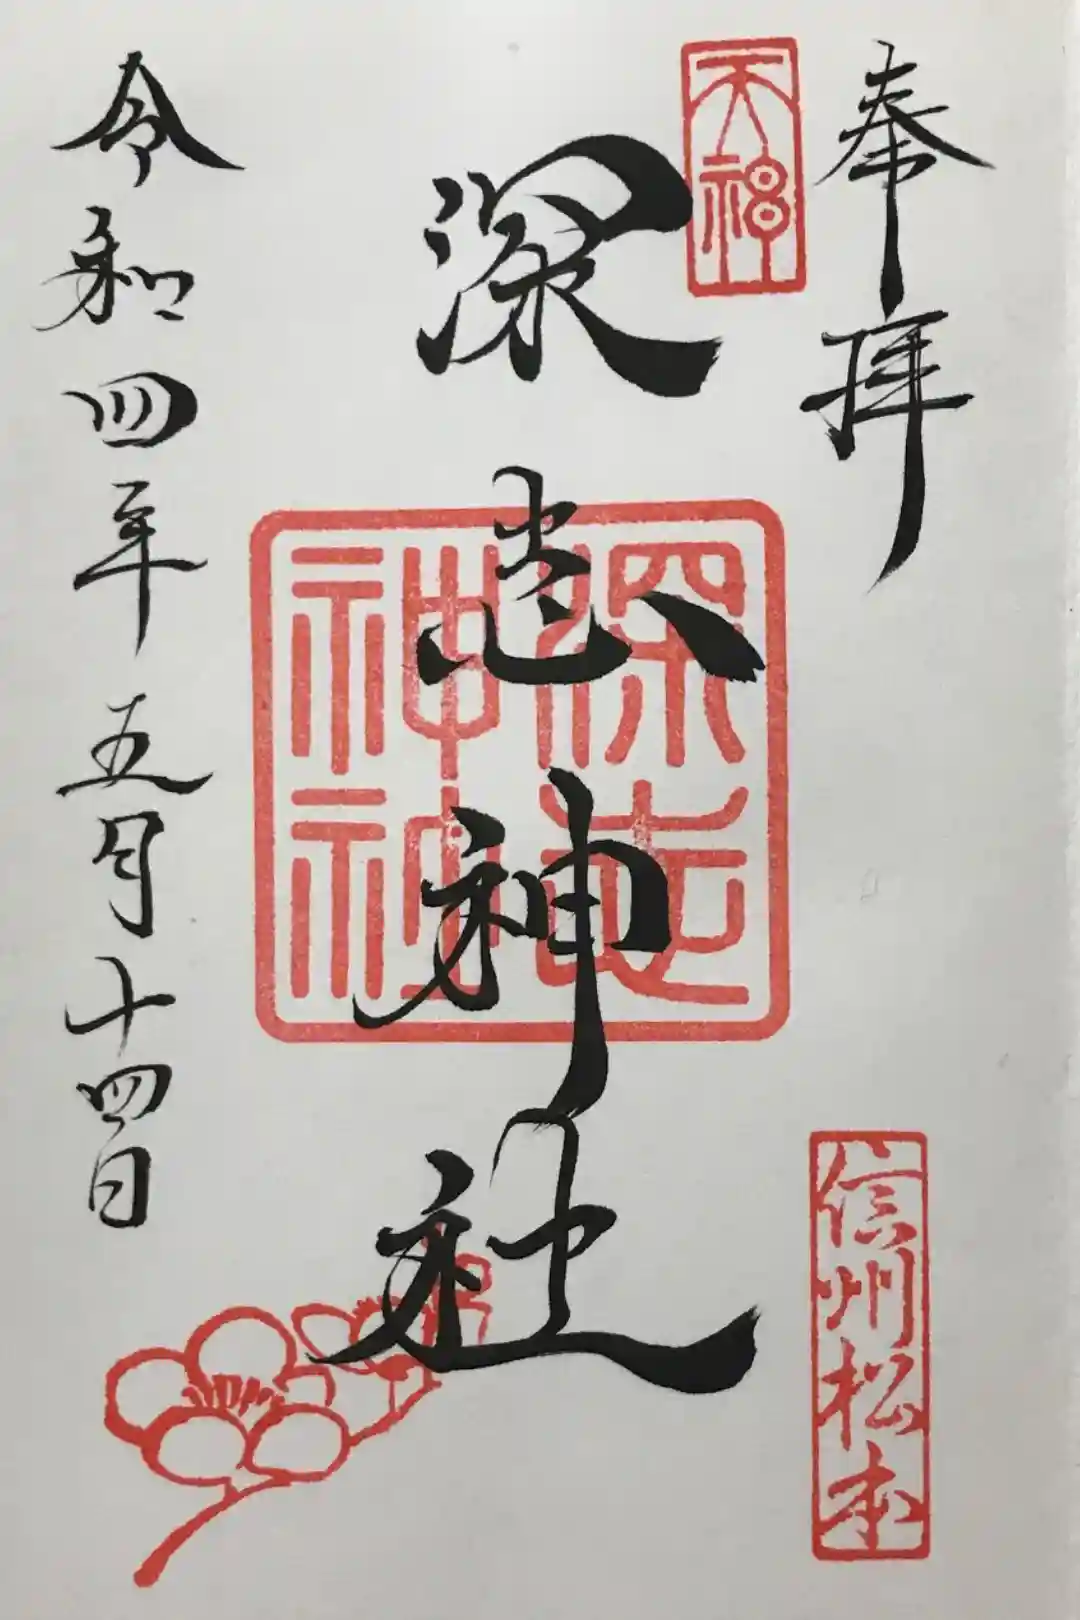 奉拝
天神
深志神社
深志神社
信州松本
令和四年五月十四日